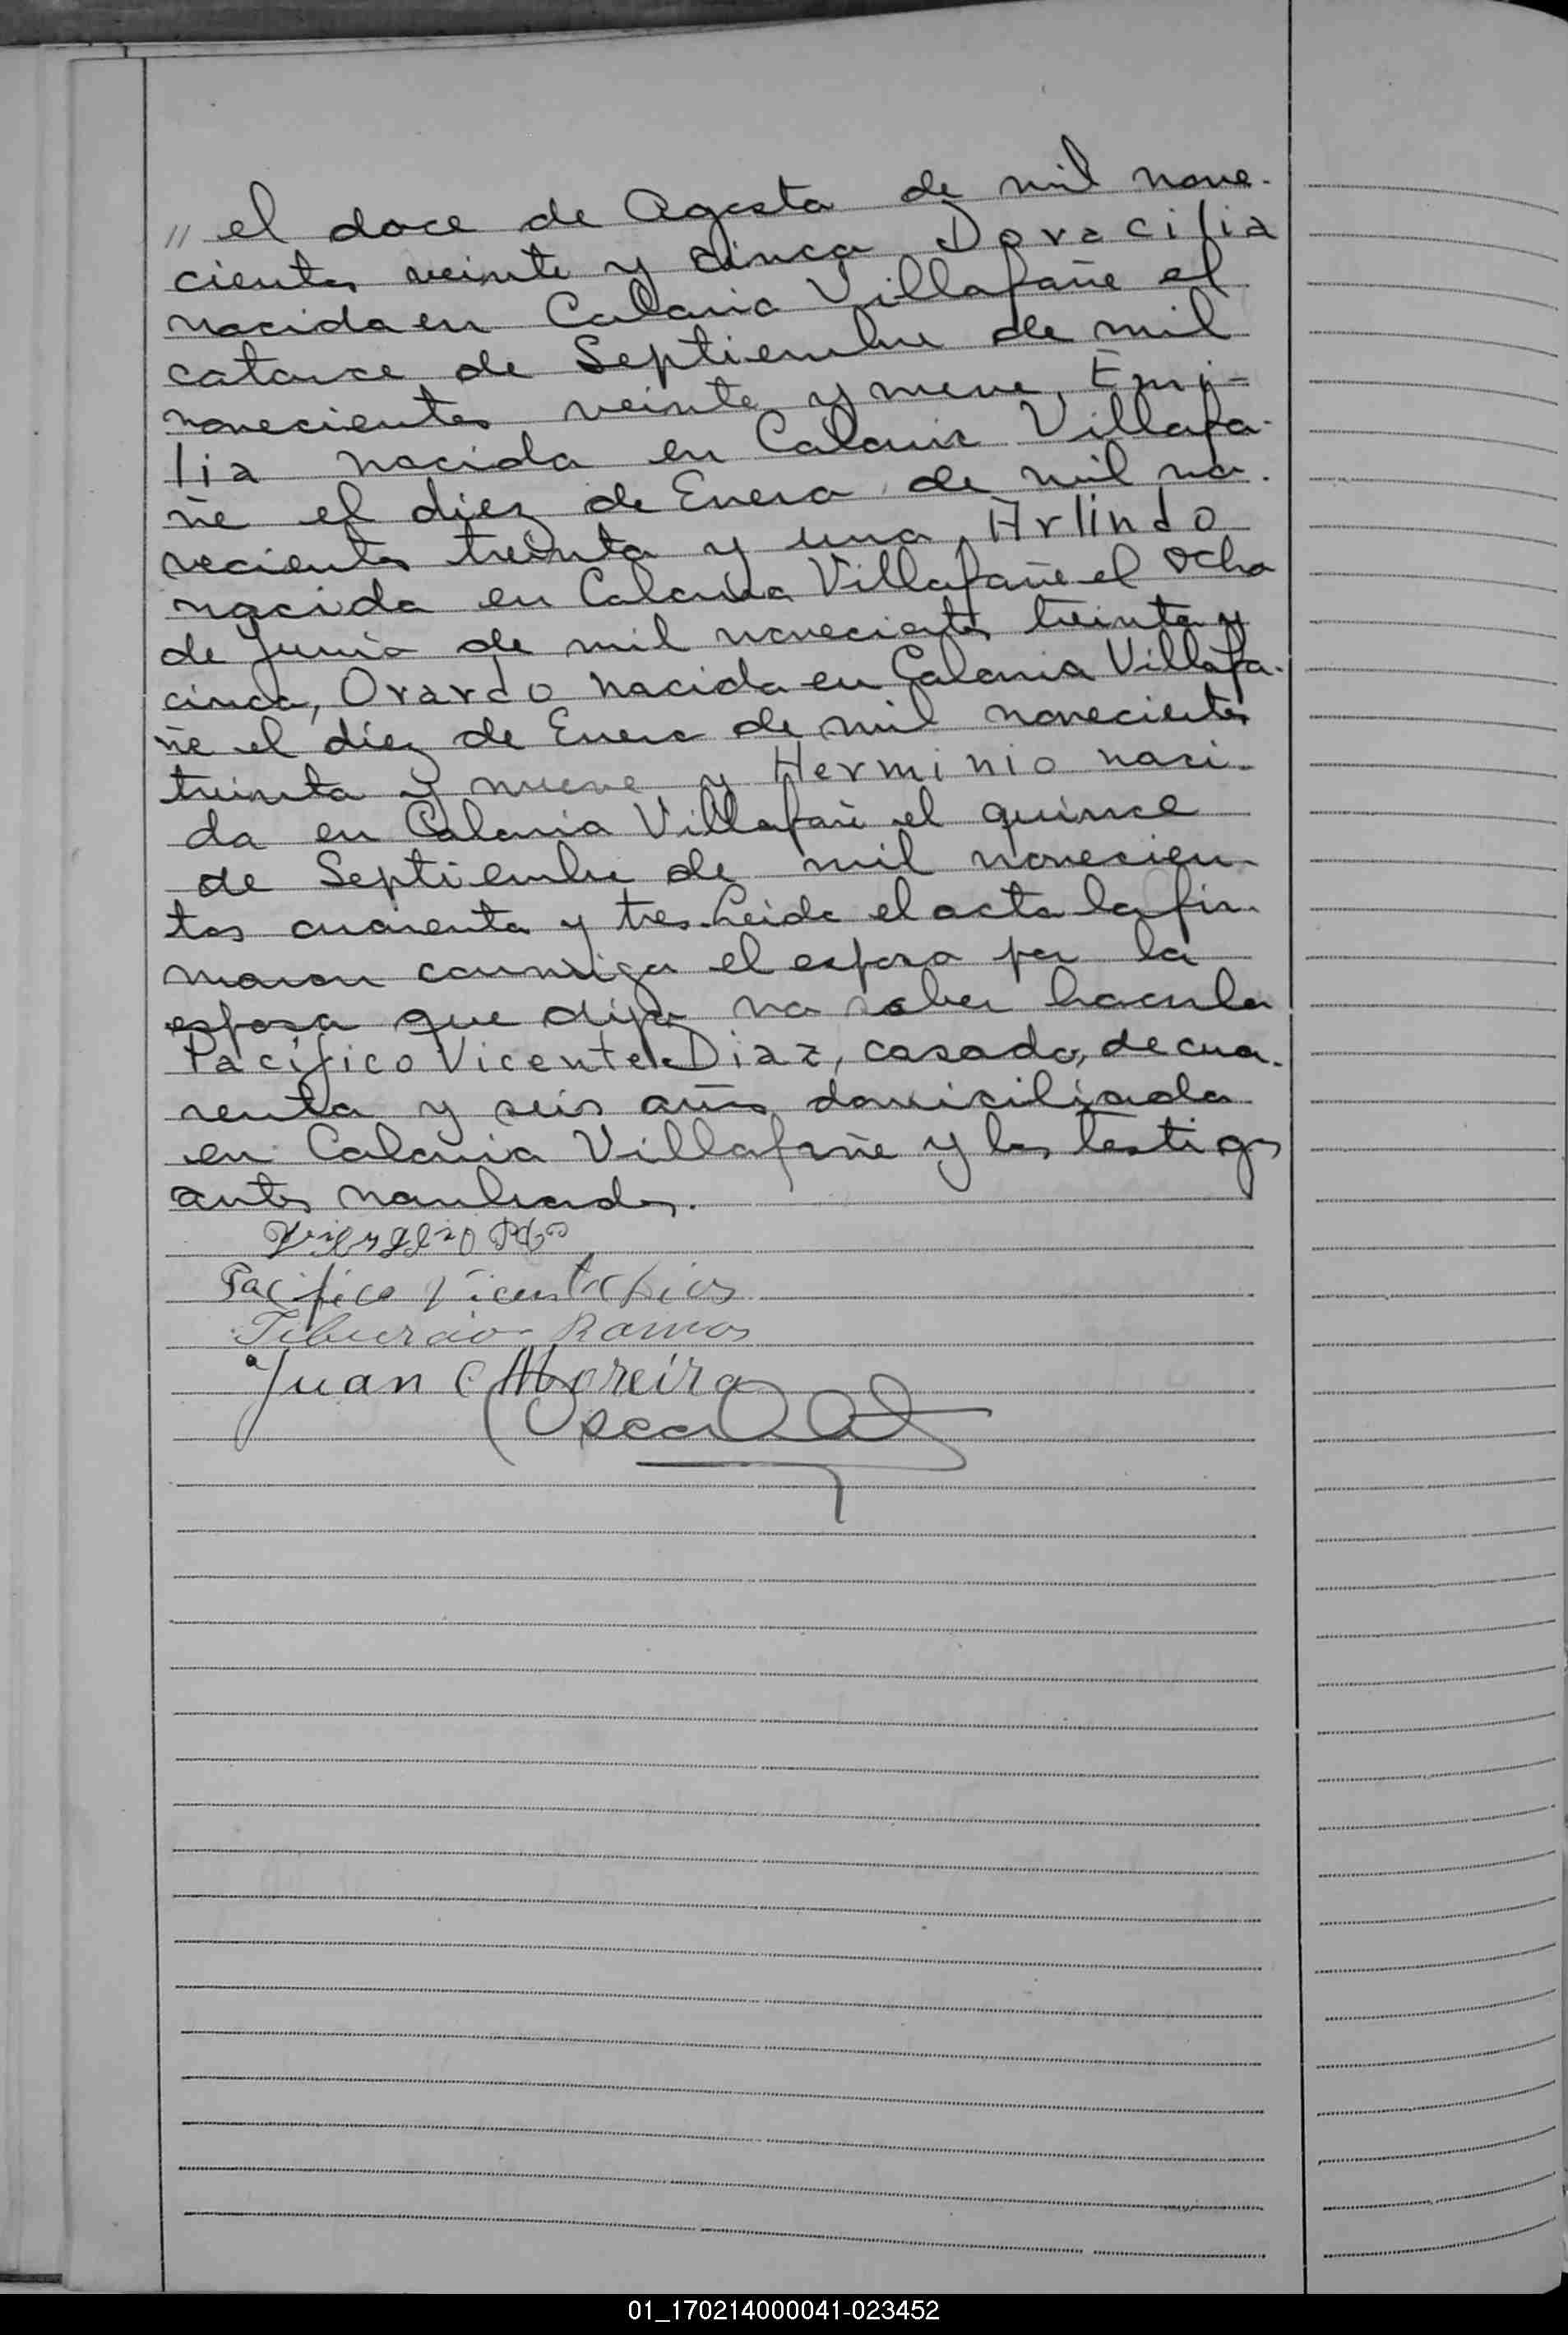 // el doce de Agosto de mil nove-
cientos veinte y cinco Doracilia
nacida en Colonia Villafañe el
catorce de Septiembre de mil
novecientos veinte y nueve, Emi-
lia nacida en Colonia Villafa-
ñe el diez de Enero de mil no-
vecientos treinta y uno, Arlindo
nacido en Colonia Villafañe el ocho
de Junio de mil novecientos treinta y
cinco, Orardo nacido en Colonia Villafa-
ñe el diez de Enero de mil novecientos
treinta y nueve y Herminio naci-
do en Colonia Villafañe el quince
de Septiembre de mil novecien-
tos cuarenta y tres. Leida el acta la fir-
maron conmigo el esposo por la
esposa que dijo no saber hacerlo
Pacífico Vicente Diaz, casado, de cua-
renta y seis años domiciliado
en Colonia Villafañe y los testigos
antes nombrados.
Pacifico Vicente Dias
Tiburcio Ramos
Juan C Moreira
Oscar
01_170214000041-023452